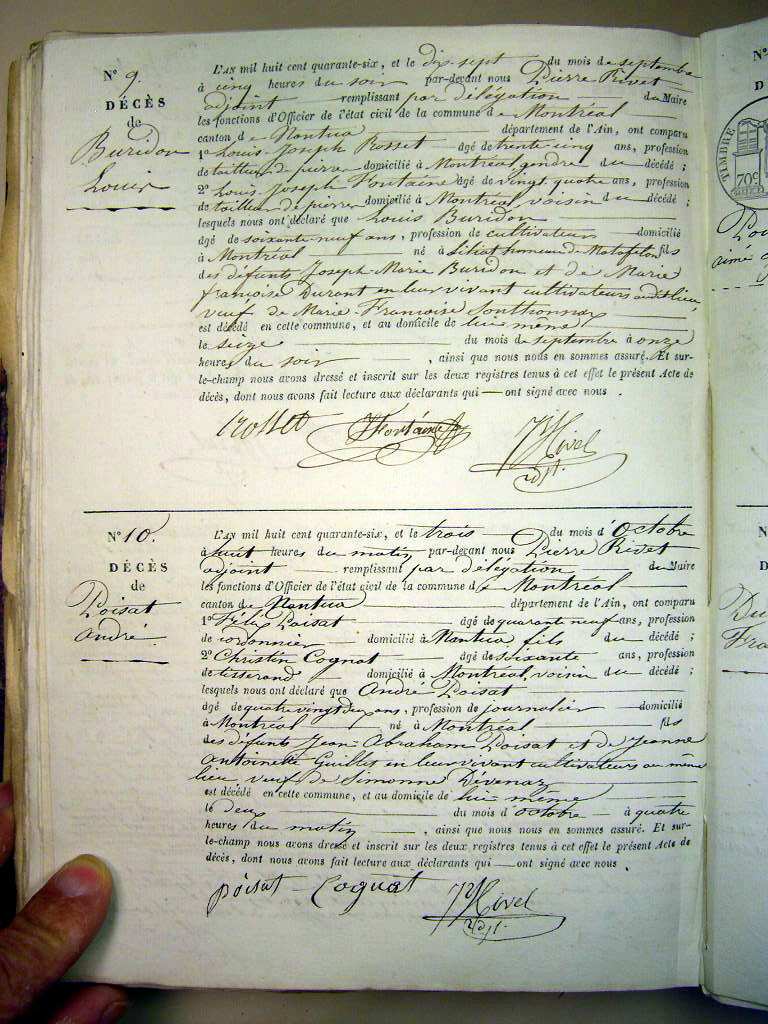 N° 9.
DÉCÈS
de
Buridon
Louis
L'AN mil huit cent quarante-six, et le dix-sept du mois de septembre
à cinq heures du soir par-devant nous Pierre Rivet
adjoint remplissant par délégation du Maire
les fonctions d'Officier de l'état civil de la commune de Montréal
canton de Nantua département de l'Ain, ont comparu
1° Louis Joseph Rosset âgé de trente cinq ans, profession
de tailleur de pierre domicilié à Montréal gendre du décédé ;
2° Louis Joseph Fontaine âgé de vingt quatre ans, profession
de tailleur de pierre domicilié à Montréal, voisin du décédé ;
lesquels nous ont déclaré que Louis Buridon
âgé de soixante neuf ans, profession de cultivateur domicilié
à Montréal né à Siliat hameau de Matafelon fils
des défunts Joseph-Marie Buridon et de Marie
françoise Durant en leur vivant cultivateurs audit lieu,
veuf de Marie-Françoise
est décédé en cette commune, et au domicile de lui même
le seize du mois de septembre à onze
heures du soir, ainsi que nous nous en sommes assuré. Et sur-
le-champ nous avons dressé et inscrit sur les deux registres tenus à cet effet le présent Acte de
décès, dont nous avons fait lecture aux déclarants qui ont signé avec nous.
rosset Fontaine Rivet
adjt.
N° 10.
DÉCÈS
de
Poisat
André.
L'AN mil huit cent quarante-six, et le trois du mois d'Octobre
à huit heures du matin par-devant nous Pierre Rivet
adjoint remplissant par délégation du Maire
les fonctions d'Officier de l'état civil de la commune de Montréal
canton de Nantua département de l'Ain, ont comparu
1° Félix Poisat âgé de quarante neuf ans, profession
de cordonnier domicilié à Nantua fils du décédé ;
2° Christin Cognat âgé de soixante ans, profession
de tisserand domicilié à Montréal, voisin du décédé ;
lesquels nous ont déclaré que André Poisat
âgé de quatre vingt deux ans, profession de journalier domicilié
à Montréal né à Montréal fils
des défunts Jean-Abraham Poisat et de Jeanne
Antoinette Guillet en leur vivant cultivateurs au même
lieu, veuf de Simonne Dévenaz
est décédé en cette commune, et au domicile de lui même
le deux du mois d'octobre à quatre
heures du matin, ainsi que nous nous en sommes assuré. Et sur-
le-champ nous avons dressé et inscrit sur les deux registres tenus à cet effet le présent Acte de
décès, dont nous avons fait lecture aux déclarants qui ont signé avec nous.
poisat Cognat Rivet
adjt.
N°
D
TIMBRE
70c
N°
D
Fra